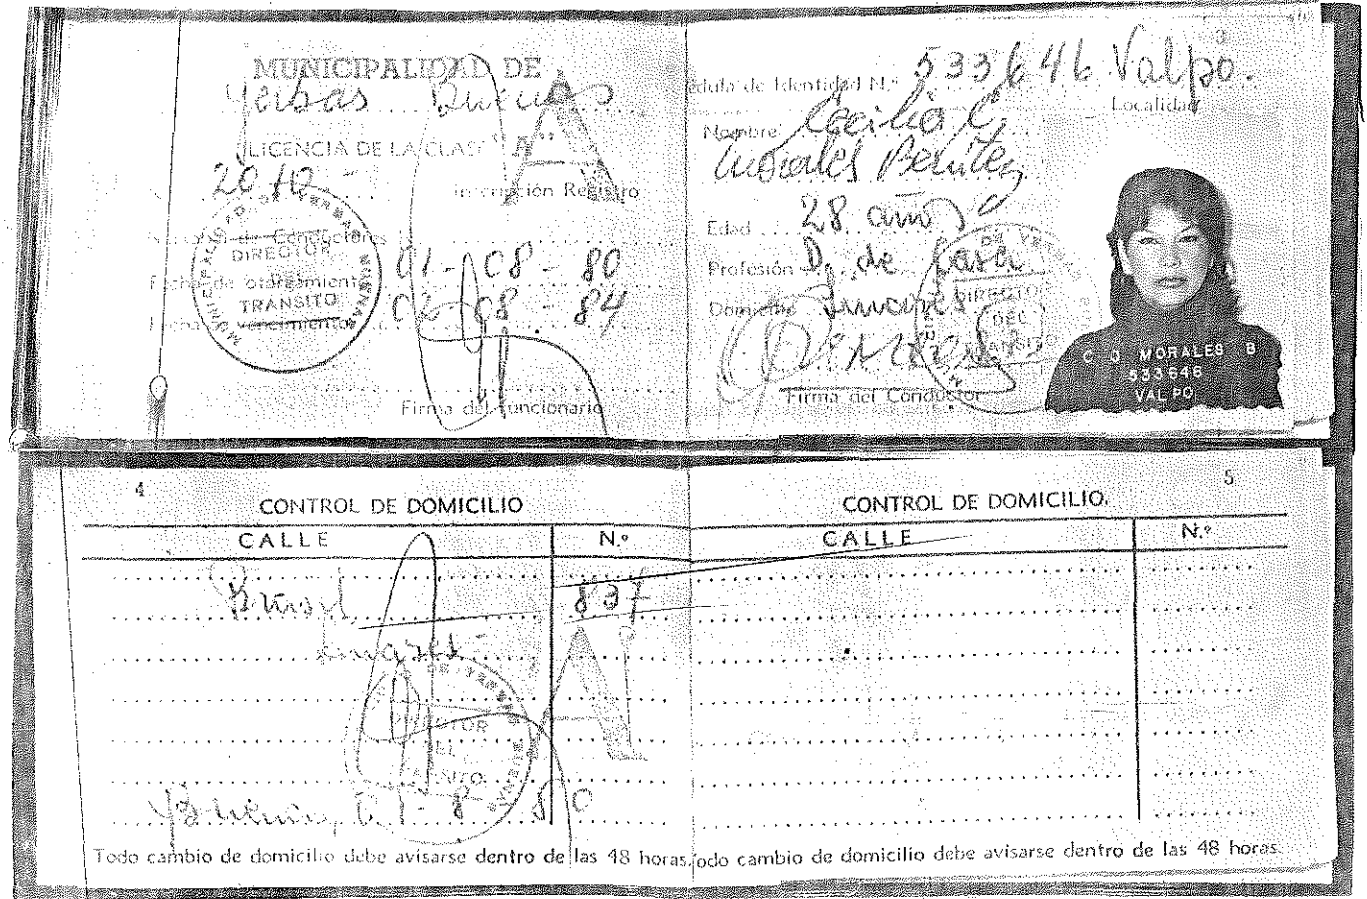 MUNICIPALIDAD DE
Yerbas Buenas
LICENCIA DE LA CLASE "A"
Inscripción Registro
Nacional de Conductores
Fecha de otorgamiento 01-08-80
Fecha de vencimiento 02-08-84
Firma del funcionario
MUNICIPALIDAD DE YERBAS BUENAS
DIRECTOR
DEL
TRANSITO
A
3
Cédula de Identidad N.º 533646 Valpo.
Localidad
Nombre Cecilia
Morales Benitez
Edad 28 años
Profesión D. de Casa
Domicilio Linares
DIRECTOR
DEL
TRANSITO
Firma del Conductor
C Q MORALES B
533646
VALPO
4
CONTROL DE DOMICILIO
CALLE N.º
Brasil 837
Linares
DIRECTOR
DEL
TRANSITO
A
Todo cambio de domicilio debe avisarse dentro de las 48 horas.
5
CONTROL DE DOMICILIO.
CALLE N.º
Todo cambio de domicilio debe avisarse dentro de las 48 horas.